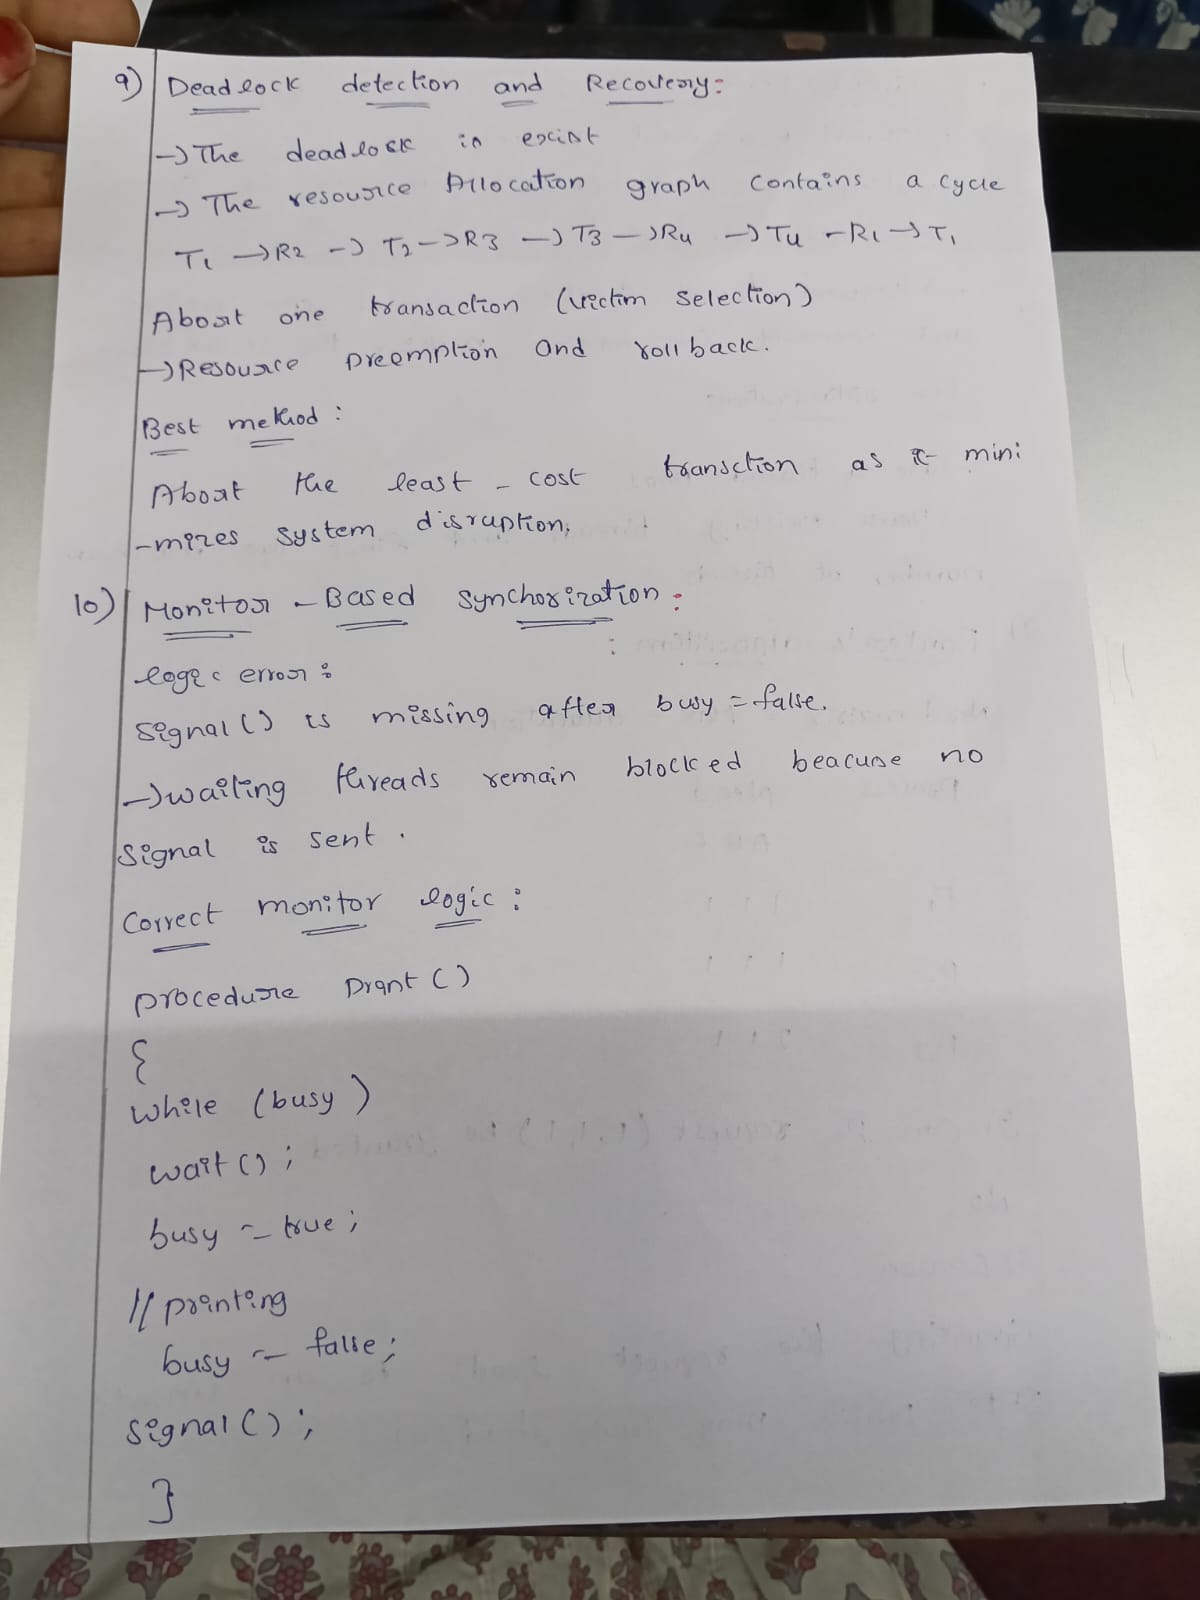 9) Deadlock detection and Recovery:
→ The deadlock is exist
→ The resource Allocation graph contains a cycle
T1 → R2 → T2 → R3 → T3 → R4 → T4 - R1 → T1
Abort one transaction (victim selection)
→ Resource preemption and rollback.
Best method:
Abort the least - cost transction as it mini
-mizes system disruption.
10) Monitor - Based synchorization:
logic error:
signal() is missing after busy = false.
→ waiting threads remain blocked beacuse no
signal is sent.
Correct monitor logic:
procedure Print()
{
while (busy)
wait();
busy = true;
// printing
busy = false;
signal();
}